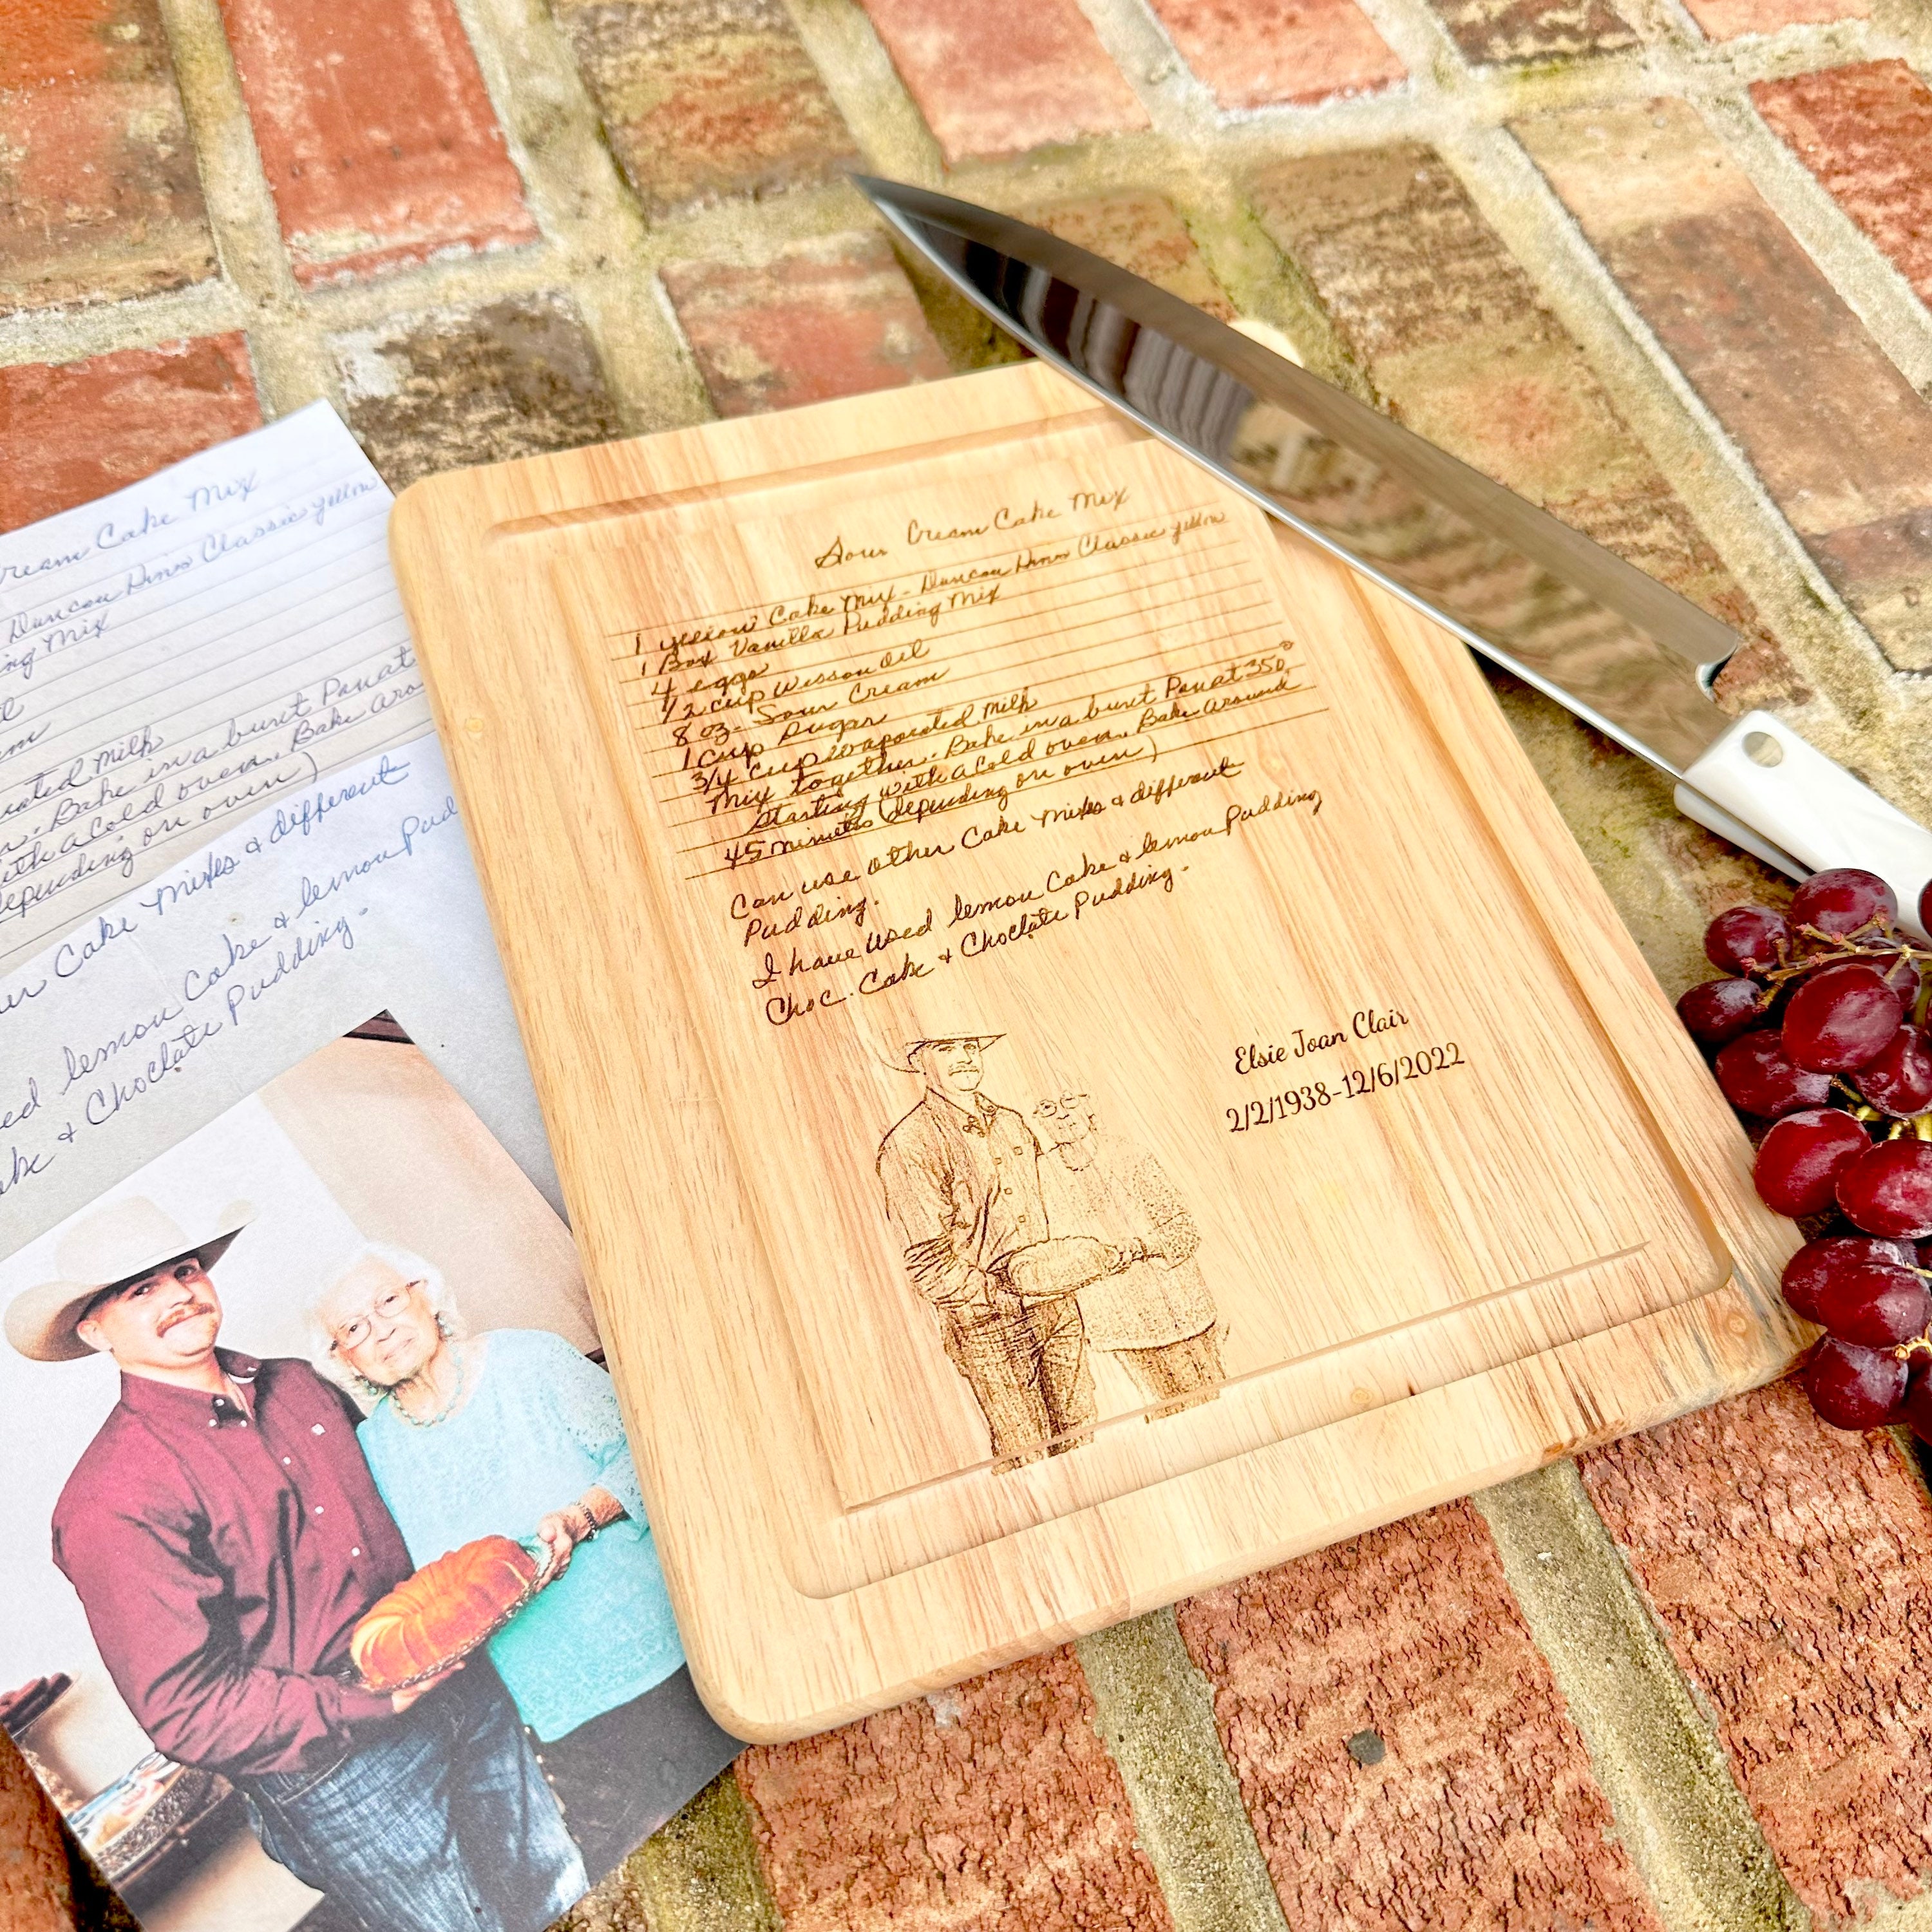 Sour Cream Cake Mix
1 yellow Cake Mix - Duncan Hins Classic yellow
1 Box Vanilla Pudding Mix
4 eggs
1/2 cup Wesson Oil
8 oz. Sour Cream
1 Cup Sugar
3/4 cup Evaporated Milk
Mix together. Bake in a bunt Pan at 350°
Starting with a Cold oven. Bake Around
45 minutes (depending on oven)
Can use other Cake Mixes & different
Pudding.
I have used lemon Cake & lemon Pudding
Choc. Cake & Choclate Pudding.
Elsie Joan Clair
2/2/1938-12/6/2022
ream Cake Mix
Duncan Hins Classic yellow
ing Mix
il
am
orated Milk
r. Bake in a bunt Pan at
ith a Cold oven. Bake Aro
depending on oven)
er Cake Mixes & different
ed lemon Cake & lemon Pud
ake & Choclate Pudding.